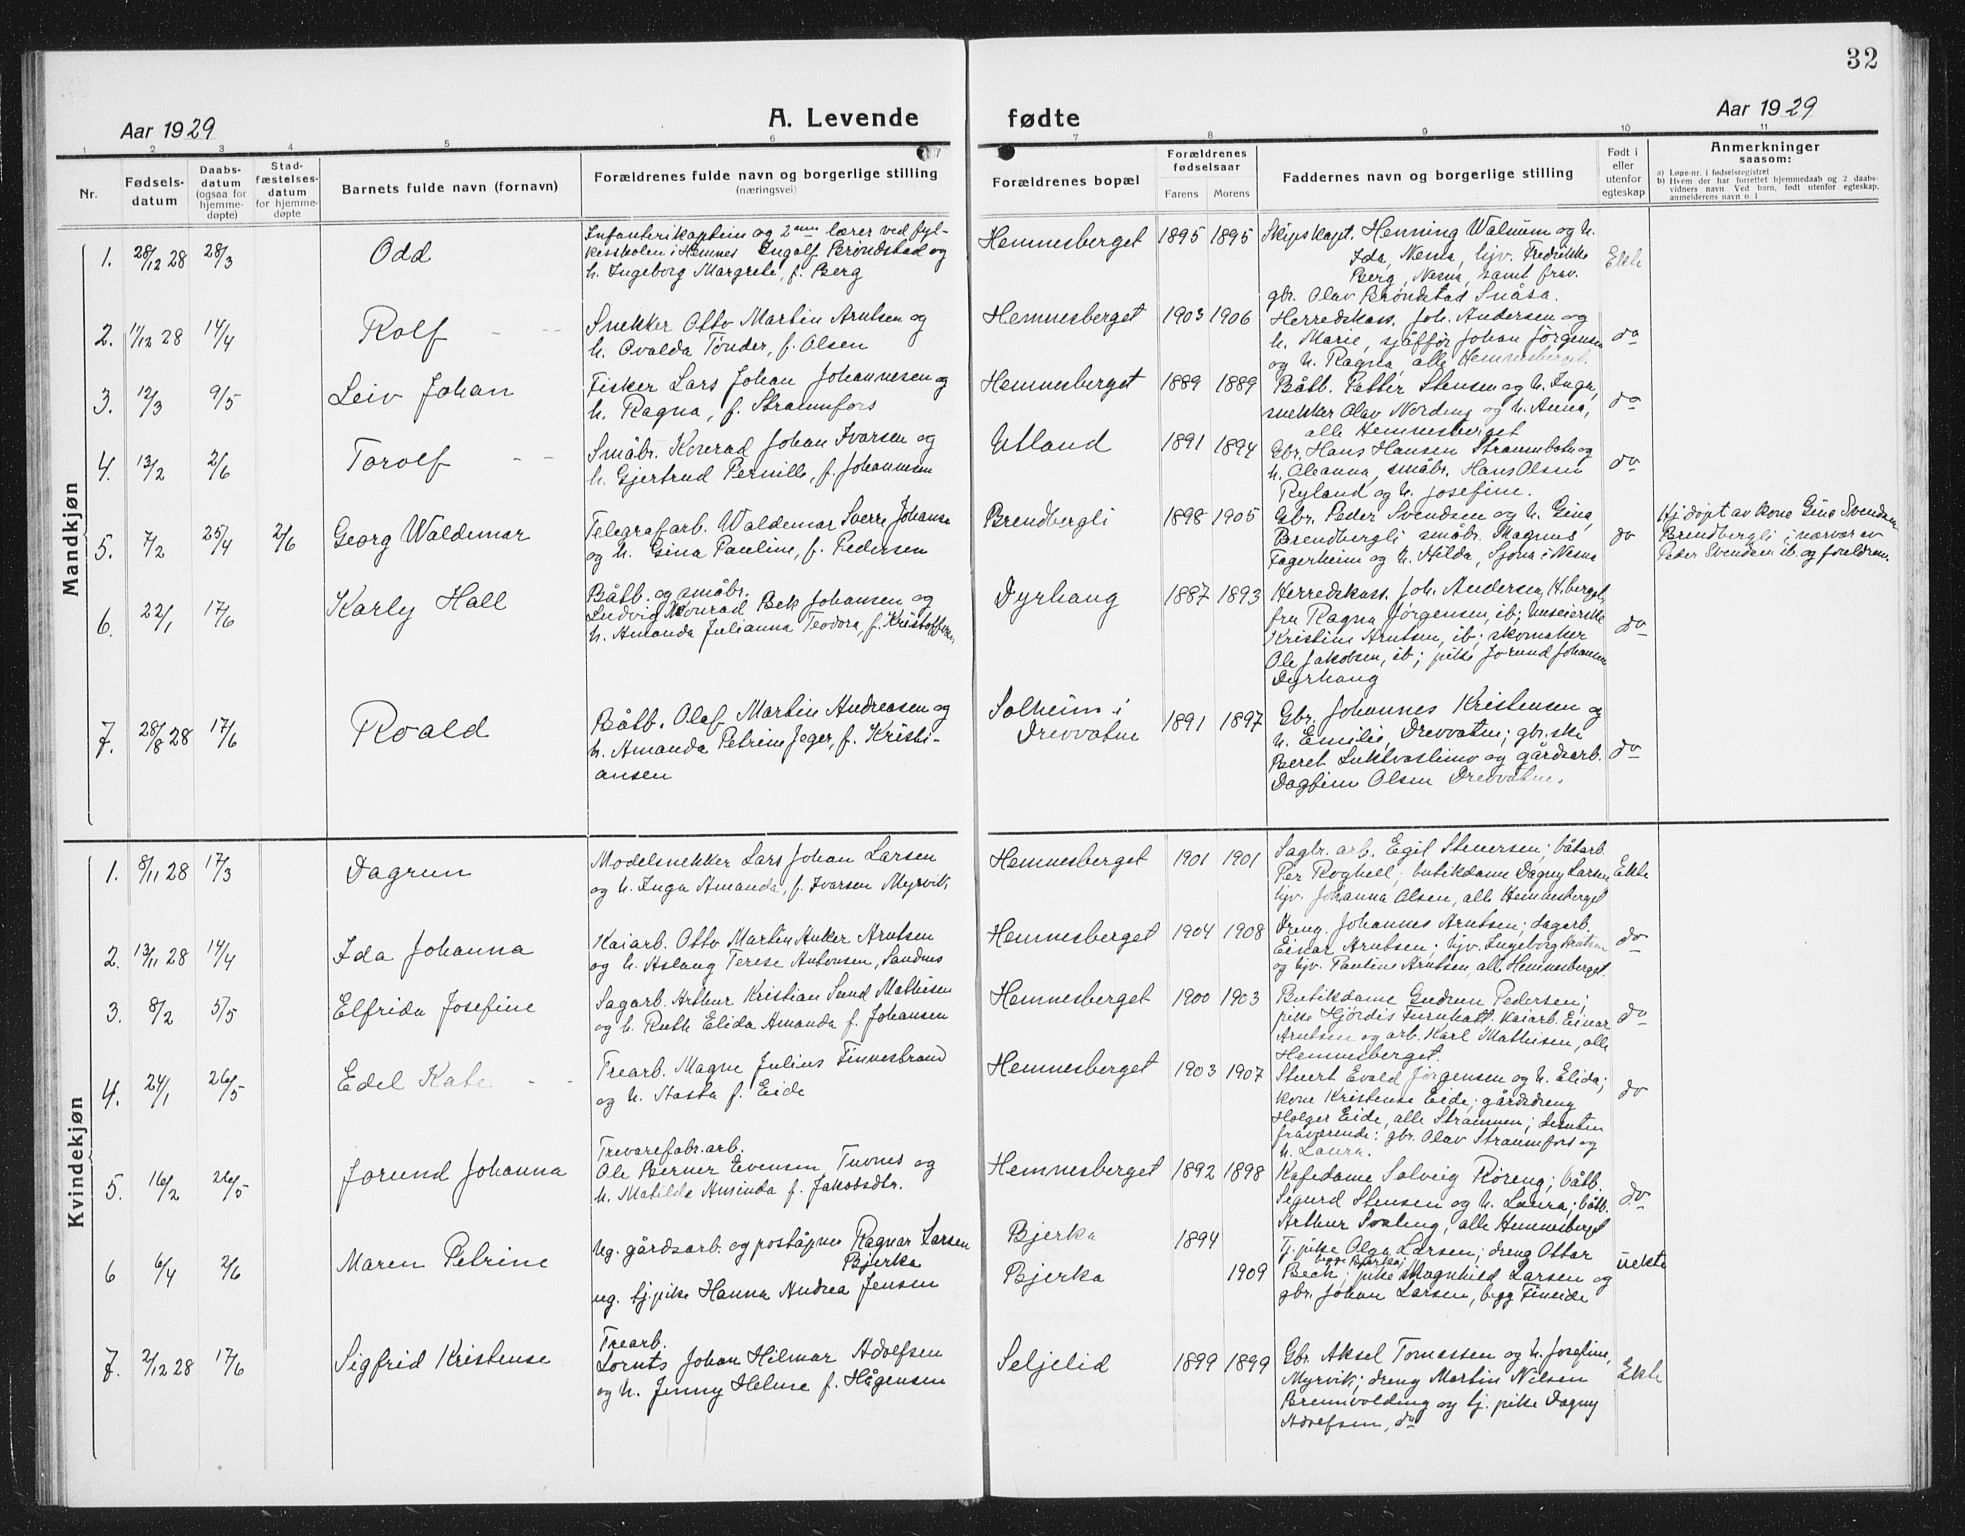 32
Aar 1929
A. Levende fødte
Aar 1929
1 2 3 4 5 6 7 8 9 10 11
Nr.
Fødsels-
datum
Daabs-
datum
(ogsaa for
hjemme-
døpte)
Stad-
fæstelses-
datum
for hjemme-
døpte
Barnets fulde navn (fornavn)
Forældrenes fulde navn og borgerlige stilling
(næringsvei)
Forældrenes bopæl
Forældrenes
fødselsaar
Farens Morens
Faddernes navn og borgerlige stilling
Født i
eller
utenfor
egteskap
Anmerkninger
saasom:
a) Løpe-nr. i fødselsregistret
b) Hvem der har forrettet hjemmedaab og 2 daabs-
vidners navn Ved barn, født utenfor egteskap,
anmelderens navn o. l
Mandkjøn
1. 28/12 28 28/3 Odd
Infanterikaptein og 2nen lærer ved fyl-
kesskolen i Hemnes Ingolf Brøndstad og
h. Ingeborg Margrete, f. Berg
Hemnesberget 1895 1895
Skipskapt. Henning Walnum og h.
Ida, Nesna, hjv. Fredrikke
Berg, Nesna, samt frav.
gbr. Olav Brøndstad Snåsa.
Ekte
2. 11/12 28 14/4 Rolf
Snekker Otto Martin Arntsen og
h. Ovalda Tønder, f. Olsen
Hemnesberget 1903 1906
Herredskass. Joh. Andersen og
h. Marie, sjåffør Johan Jørgensen
og h. Ragna, alle Hemnesberget.
do
3. 12/3 9/5 Leiv Johan
Fisker Lars Johan Johannesen og
h. Ragna, f. Straumfors
Hemnesberget 1889 1889
Båtb. Petter Stensen og h. Inga,
snekker Olav Nordeng og h. Anna,
alle Hemnesberget
do
4. 13/2 2/6 Torolf
Småbr. Konrad Johan Ivarsen og
h. Gjertrud Pernille, f. Johannesen
Utland 1891 1894
Gbr. Hans Hansen Straumbotn og
h. Oleanna, småbr. Hans Olsen
Ryland og h. Josefine.
do
5. 7/2 25/4 2/6 Georg Waldemar
Telegrafarb. Waldemar Sverre Johansen
og h. Gina Pauline, f. Pedersen
Brendbergli 1898 1905
Gbr. Peder Svendsen og h. Gina,
Brendbergli småbr. Magnus
Fagerheim og h. Hilda, Sjona i Nesna
do
Hj døpt av kone Gina Svendsen
Brendbergli i nærvær av
Peder Svendsen ib. og foreldrene.
6. 22/1 17/6 Karly Hall
Båtb. og småbr.
Ludvig Konrad Bek Johansen og
h. Amanda Julianna Teodora, f. Kristoffersen
Dyrhaug 1887 1893
Herredskass. Joh. Andersen, H.berget,
fru Ragna Jørgensen, ib; huseierske
Kristine Arntsen, ib; skomaker
Ole Jakobsen, ib; pike Jorund Johansen
Dyrhaug
do
7. 28/8 28 17/6 Roald
Båtb. Olaf Martin Andreasen og
h. Amanda Petrine Jeger, f. Kristi-
ansen
Solheim i
Drevvatne 1891 1897
Gbr. Johannes Kristensen og
h. Emilie, Drevvatne; gbr.ske
Beret Luktvastimo og gårdsarb.
Dagfinn Olsen Drevvatne.
do
Kvindekjøn
1. 8/11 28 17/3 Dagrun
Modelsnekker Lars Johan Larsen
og h. Inga Amanda, f. Ivarsen Myrvik
Hemnesberget 1901 1901
Sagbr. arb. Egil Stenersen; båtarb.
Per Roghell; butikdame Dagny Larsen
hjv. Johanna Olsen, alle Hemnesberget
Ekte
2. 13/11 28 14/4 Ida Johanna
Kaiarb. Otto Martin Anker Arntsen
og h. Aslaug Terese Antonsen, Sandnes
Hemnesberget 1904 1908
Dreng. Johannes Arntsen; sagarb.
Einar Arntsen; hjv. Ingeborg Arntsen
og hjv. Pauline Arntsen, alle Hemnesberget.
do
3. 8/2 5/5 Elfrida Josefine
Sagarb. Arthur Kristian Sund Mathisen
og h. Ruth Elida Amanda f. Johansen
Hemnesberget 1900 1903
Butikdame Gudrun Pedersen;
pike Hjördis Furuhatt. kaiarb. Einar
Arntsen og arb. Karl Mathisen, alle
Hemnesberget.
do
4. 24/1 26/5 Edel Kate
Trearb. Magne Julius Finnestrand
og h. Aasta f. Eide
Hemnesberget 1903 1907
Stuert Evald Jörgensen og h. Elida;
kone Kristense Eide; gårdsdreng
Holger Eide, alle Straumen; desuten
fraværende: gbr. Olav Straumfors og
h. Laura.
do
5. 16/2 26/5 Jorund Johanna
Trevarefabr.arb.
Ole Berner Evensen Tuvnes og
h. Matilde Aminda f. Jakobsdtr.
Hemnesberget 1892 1898
Kafedame Solveig Røreng; båtb.
Sigurd Stensen og h. Laura; båtb.
Arthur Svaleng, alle Hemnesberget
do
6 6/4 2/6 Maren Petrine
Ug. gårdsarb. og poståpner Ragnar Larsen
Bjerka
ug. tj.pike Hanna Andrea Jensen
Bjerka 1894
Bjerka 1909
Tj.pike Olga Larsen; dreng Ottar
Beck; pike Magnhild Larsen og
gbr. Johan Larsen, begg Fineide
uekte
7. 2/12 28 17/6 Sigfrid Kristense
Trearb.
Lorents Johan Hilmar Adolfsen
og h. Jenny Helene f. Hågensen
Seljelid 1899 1899
Gbr. Aksel Tomassen og h. Josefine,
Myrvik; dreng Martin Nilsen
Brennvolding og tj. pike Dagny
Adolfsen, do
Ekte